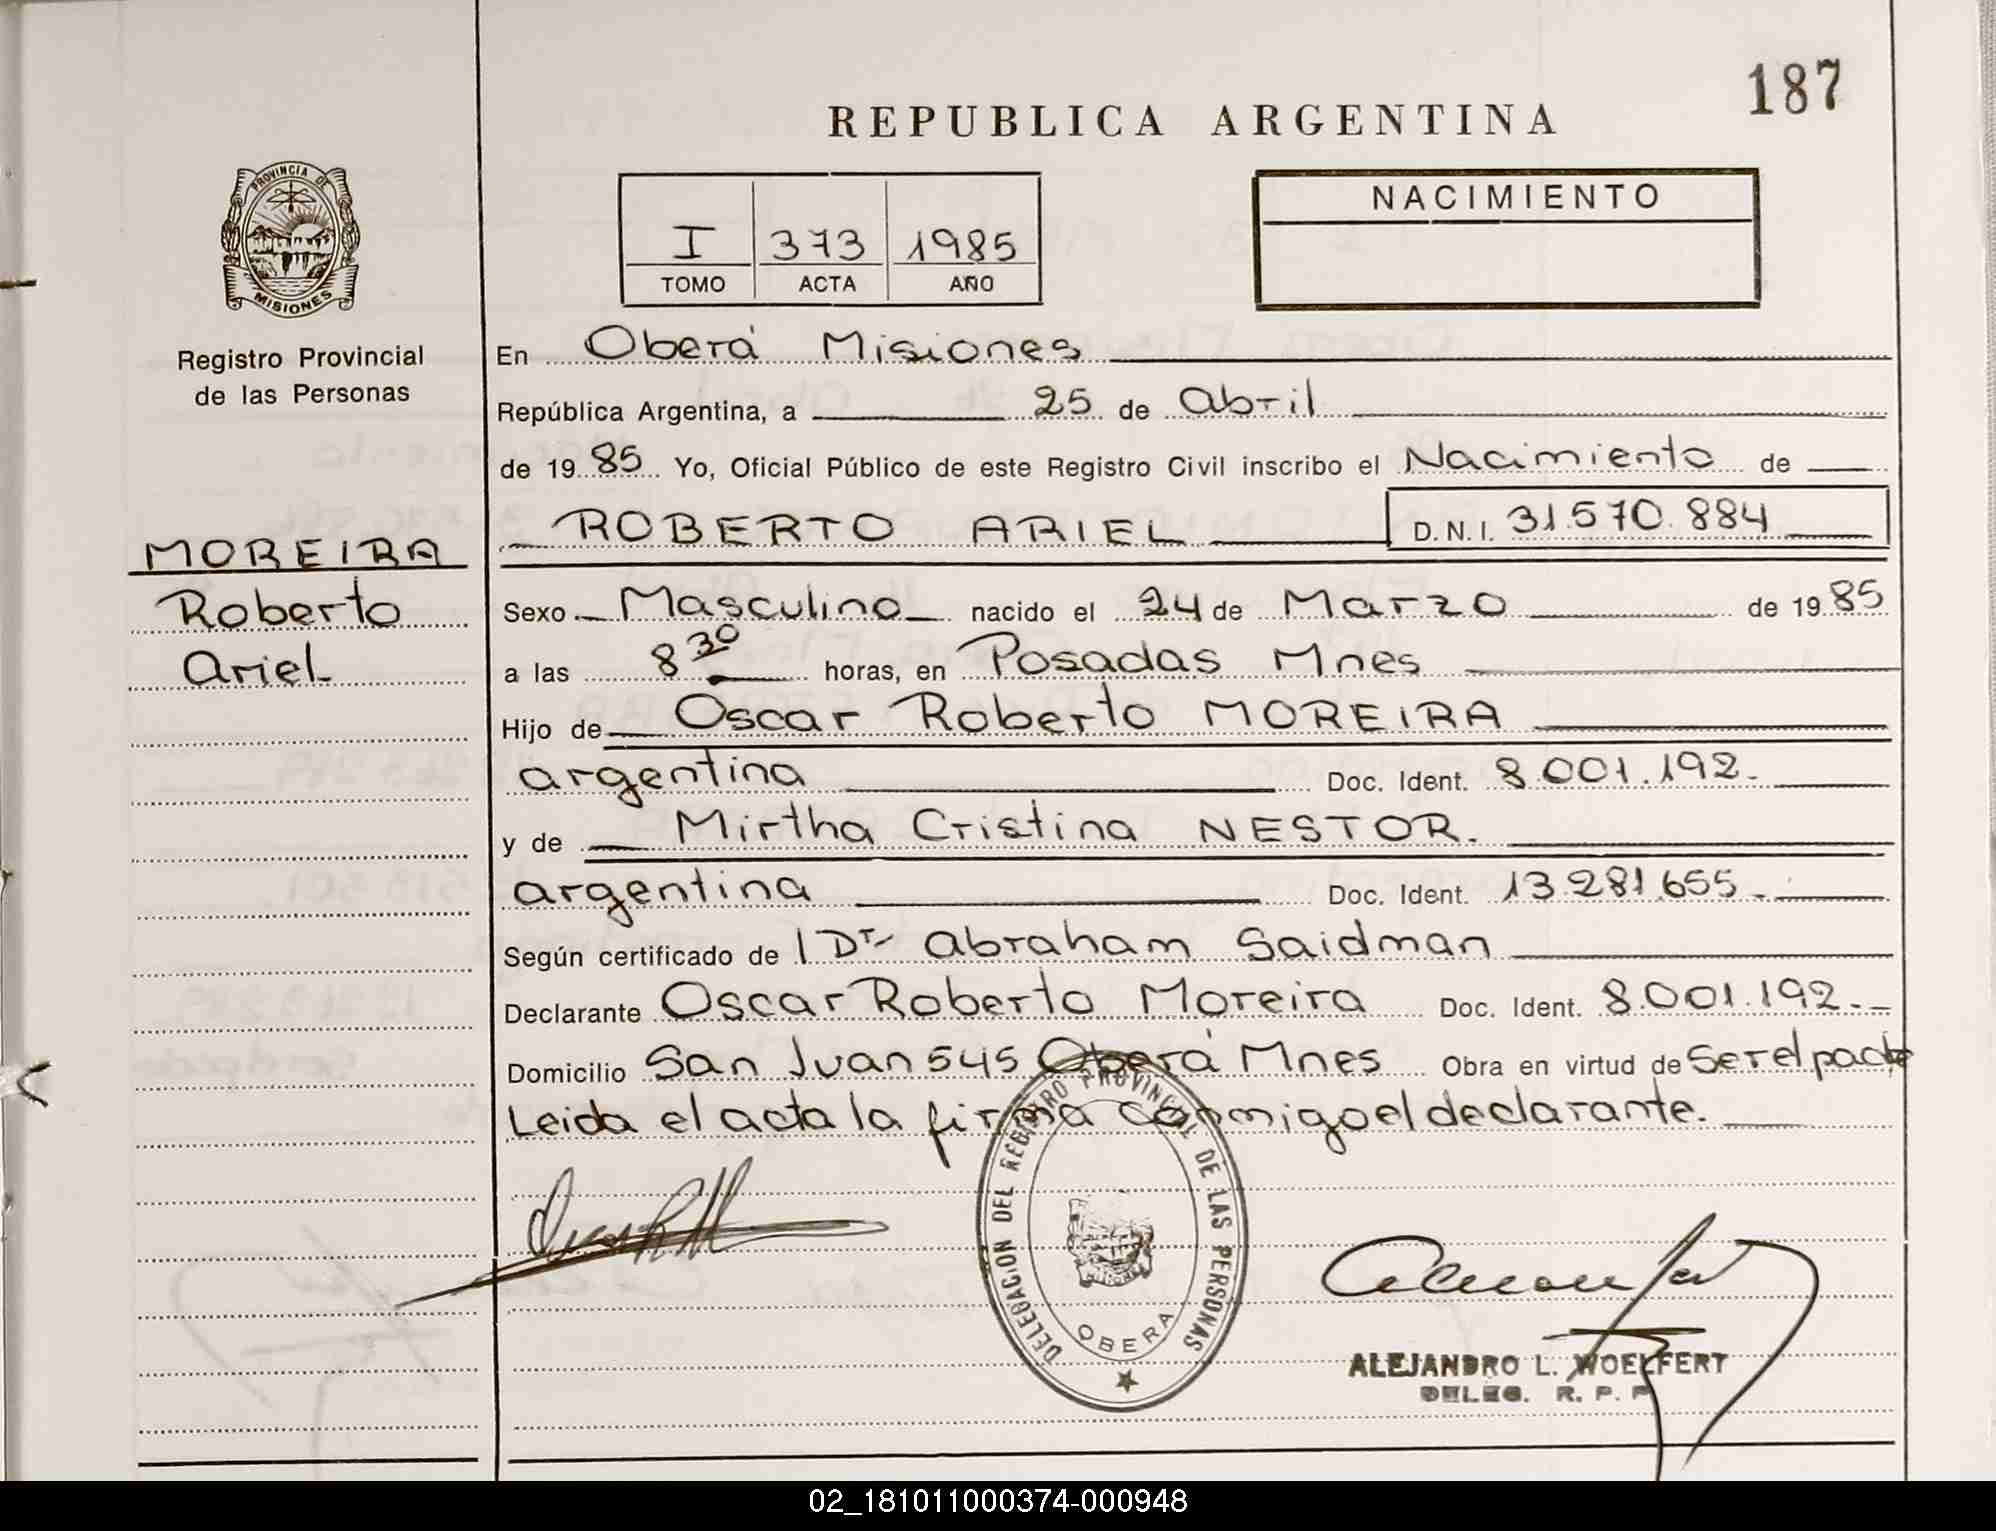 187
REPUBLICA ARGENTINA
PROVINCIA DE
MISIONES
Registro Provincial
de las Personas
I 373 1985
TOMO ACTA AÑO
NACIMIENTO
MOREIRA
Roberto
Ariel
En Oberá Misiones
República Argentina, a 25 de Abril
de 19 85 Yo, Oficial Público de este Registro Civil inscribo el Nacimiento de
ROBERTO ARIEL D.N.I. 31.570.884
Sexo Masculino nacido el 24 de Marzo de 19 85
a las 8 30 horas, en Posadas Mnes
Hijo de Oscar Roberto MOREIRA
argentina Doc. Ident. 8.001.192.
y de Mirtha Cristina NESTOR.
argentina Doc. Ident. 13.281.655
Según certificado de l Dr Abraham Saidman
Declarante Oscar Roberto Moreira Doc. Ident. 8.001.192.
Domicilio San Juan 545 Oberá Mnes Obra en virtud de Ser el padre
Leida el acta la firma conmigo el declarante.
DELEGACION DEL REGISTRO PROVINCIAL DE LAS PERSONAS
OBERA
ALEJANDRO L. WOELFERT
DELEG. R. P. P
02_181011000374-000948